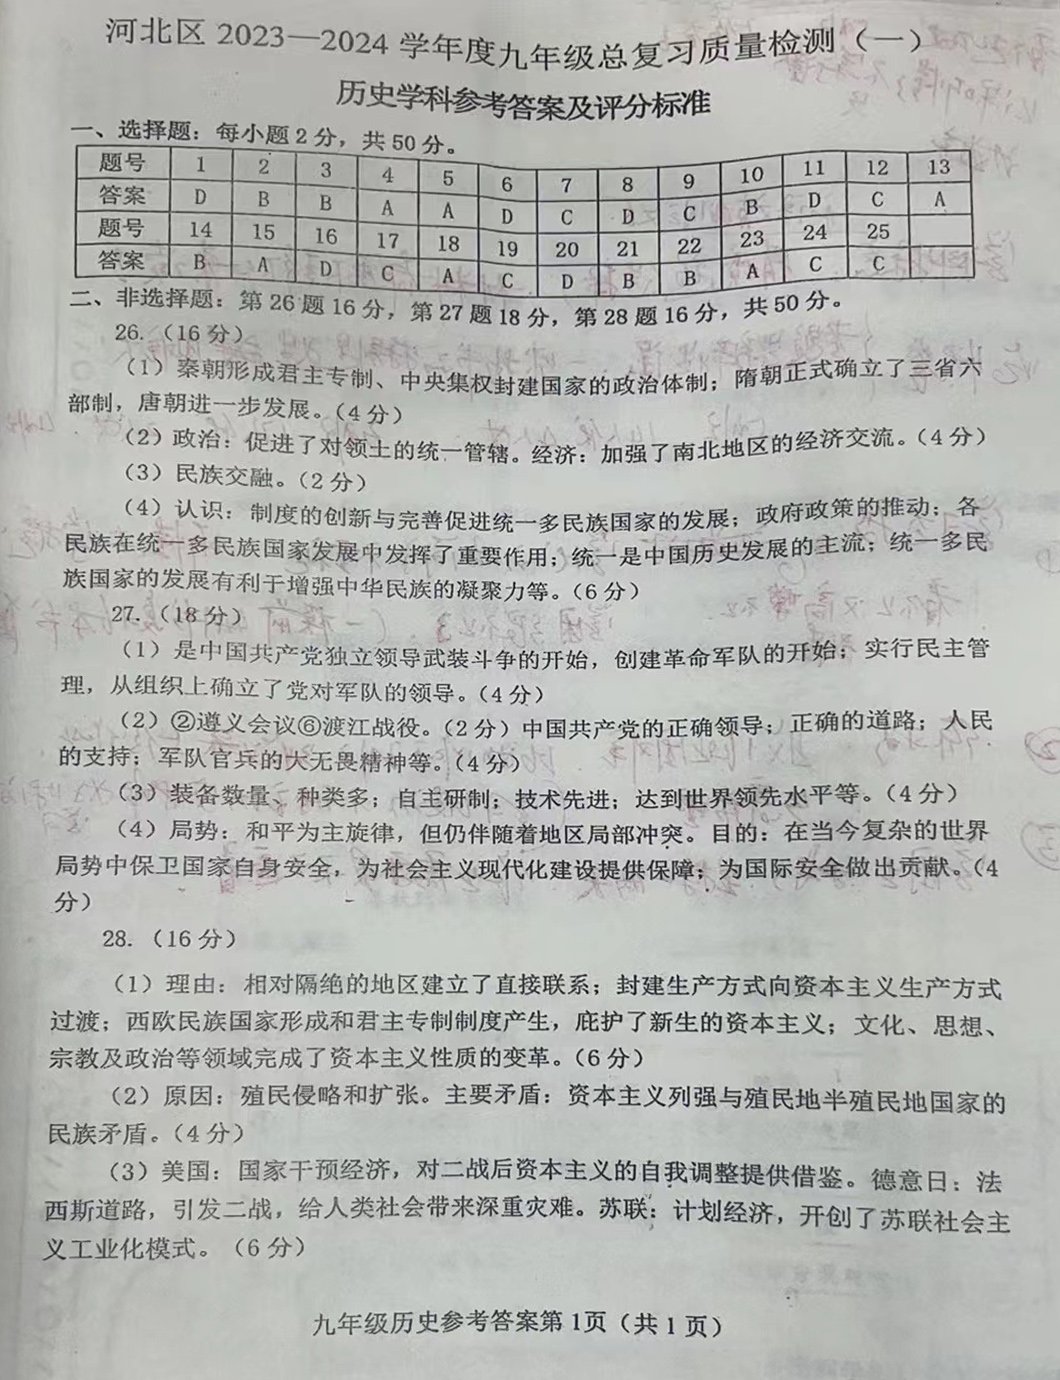 河北区 2023—2024 学年度九年级总复习质量检测（一）
历史学科参考答案及评分标准
一、选择题：每小题2分，共50分。
题号 1 2 3 4 5 6 7 8 9 10 11 12 13
答案 D B B A A D C D C B D C A
题号 14 15 16 17 18 19 20 21 22 23 24 25
答案 B A D C A C D B B A C C
二、非选择题：第26题16分，第27题18分，第28题16分，共50分。
26.（16分）
（1）秦朝形成君主专制、中央集权封建国家的政治体制；隋朝正式确立了三省六
部制，唐朝进一步发展。（4分）
（2）政治：促进了对领土的统一管辖。经济：加强了南北地区的经济交流。（4分）
（3）民族交融。（2分）
（4）认识：制度的创新与完善促进统一多民族国家的发展；政府政策的推动；各
民族在统一多民族国家发展中发挥了重要作用；统一是中国历史发展的主流；统一多民
族国家的发展有利于增强中华民族的凝聚力等。（6分）
27.（18分）
（1）是中国共产党独立领导武装斗争的开始，创建革命军队的开始；实行民主管
理，从组织上确立了党对军队的领导。（4分）
（2）②遵义会议⑥渡江战役。（2分）中国共产党的正确领导；正确的道路；人民
的支持；军队官兵的大无畏精神等。（4分）
（3）装备数量、种类多；自主研制；技术先进；达到世界领先水平等。（4分）
（4）局势：和平为主旋律，但仍伴随着地区局部冲突。目的：在当今复杂的世界
局势中保卫国家自身安全，为社会主义现代化建设提供保障；为国际安全做出贡献。（4
分）
28.（16分）
（1）理由：相对隔绝的地区建立了直接联系；封建生产方式向资本主义生产方式
过渡；西欧民族国家形成和君主专制制度产生，庇护了新生的资本主义；文化、思想、
宗教及政治等领域完成了资本主义性质的变革。（6分）
（2）原因：殖民侵略和扩张。主要矛盾：资本主义列强与殖民地半殖民地国家的
民族矛盾。（4分）
（3）美国：国家干预经济，对二战后资本主义的自我调整提供借鉴。德意日：法
西斯道路，引发二战，给人类社会带来深重灾难。苏联：计划经济，开创了苏联社会主
义工业化模式。（6分）
九年级历史参考答案第1页（共1页）